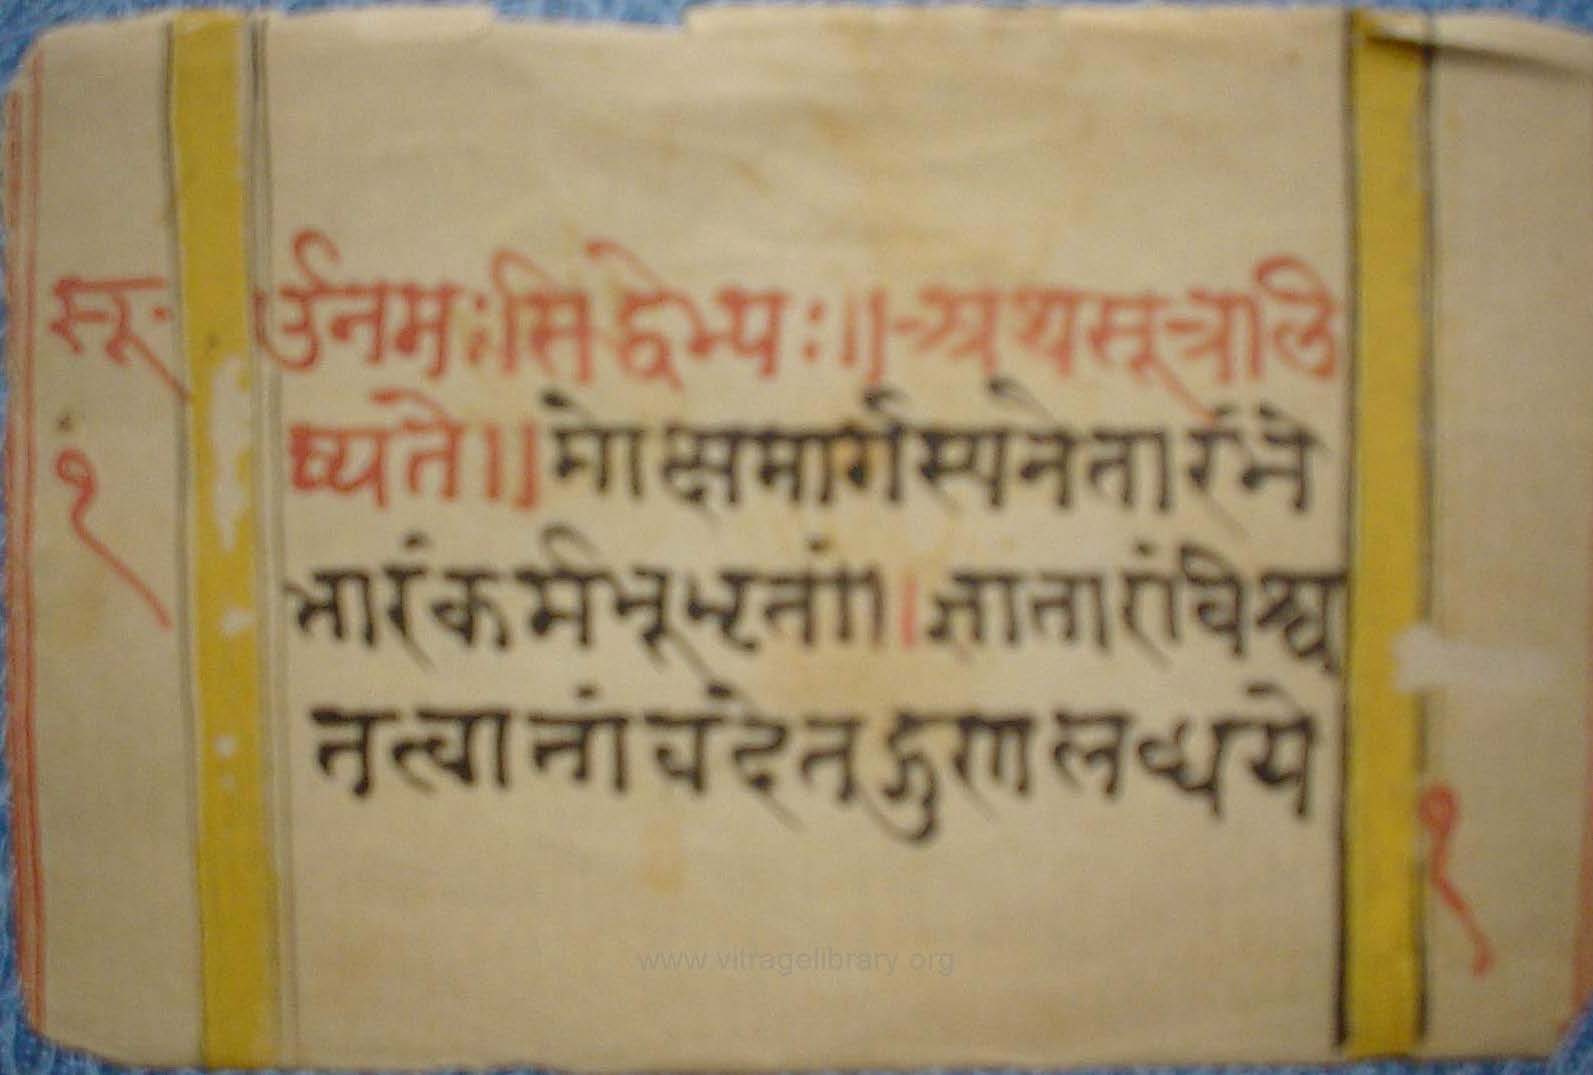 सू॰ उँनमःसिद्धेभ्यः॥अथसूत्रालि
१ ष्यते॥मोक्षमार्गस्यनेतारंभे
त्तारंकर्मभूभृतां।।ज्ञातारंविश्व
तत्वानांवंदेतद्गुणलब्धये
१
www.vitragelibrary.org